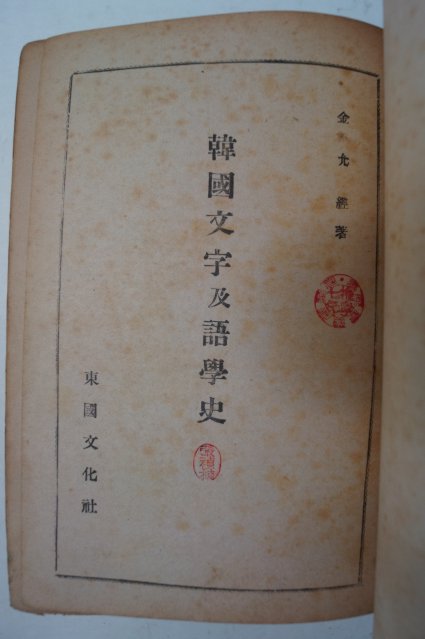 金允經著
韓國文字及語學史
東國文化社